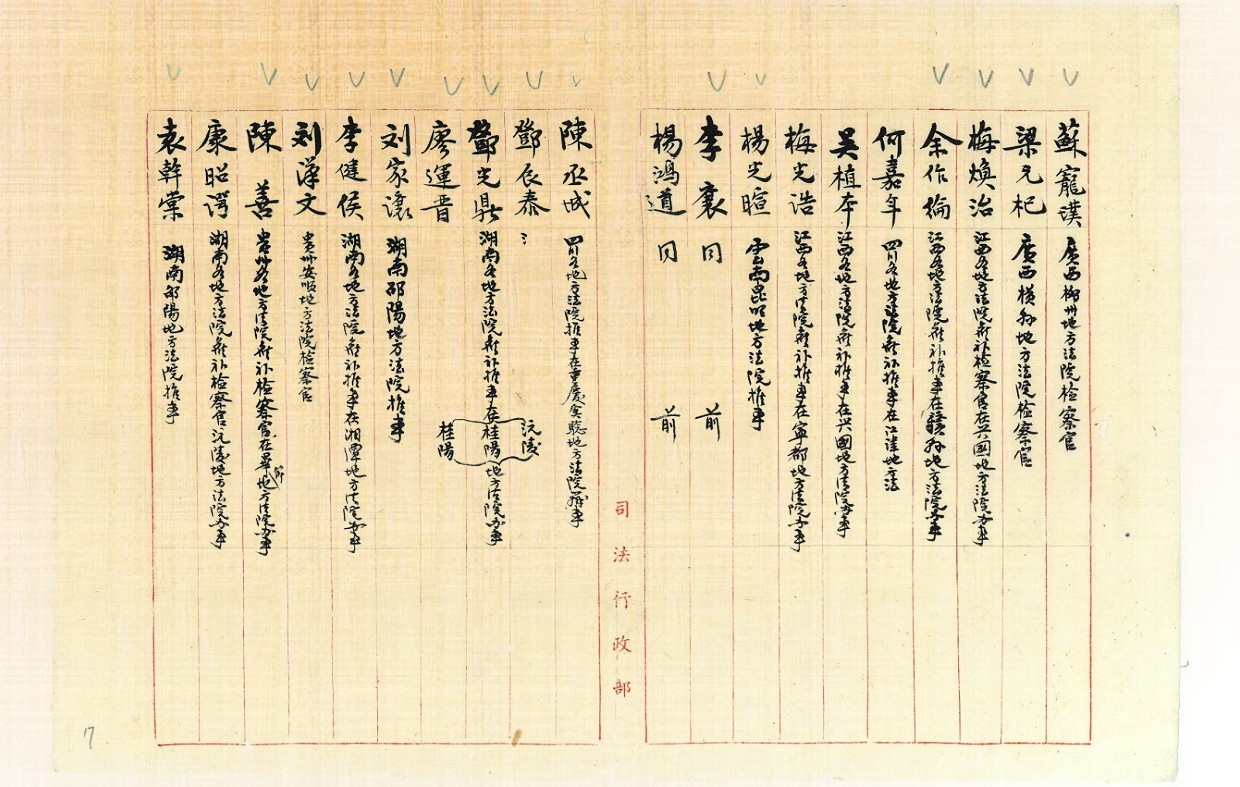 蘇寵璞 廣西柳州地方法院檢察官
梁元杞 廣西橫縣地方法院檢察官
梅煥治 江西各地方法院候補檢察官在兴國地方法院办事
余作綸 江西各地方法院候補推事在贛縣地方法院办事
何嘉年 四川各地方法院候補推事在江津地方法
吴植本 江西各地方法院候補推事在兴國地方法院办事
梅光浩 江西各地方法院候補推事在寧都地方法院办事
楊光暄 雲南昆明地方法院推事
李襄 同前
楊鴻道 同前
司法行政部
陳丞城 四川各地方法院推事在重慶實驗地方法院办事
鄧辰泰 〻
鄧光鼎 湖南各地方法院候补推事在桂陽地方法院办事
沅陵
桂陽
廖運晋
刘家讓 湖南邵陽地方法院推事
李健侯 湖南各地方法院候补推事在湘潭地方法院办事
刘漢文 貴州安順地方法院检察官
陳善 貴州各地方法院候补检察官在畢節地方法院办事
康昭諤 湖南各地方法院候补检察官沅陵地方法院办事
袁幹棠 湖南邵陽地方法院推事
7